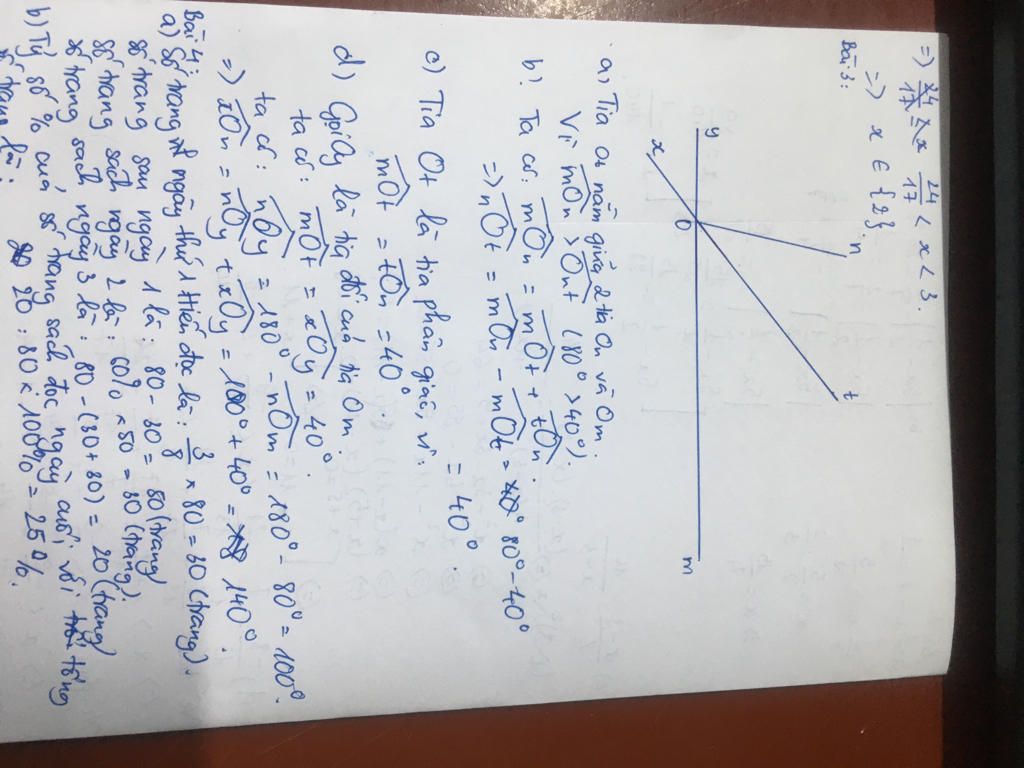 =) 24/17 < x 24/17 < x < 3.
=) x ∈ {2}.
Bài 3:
y
x
O
n
t
m
a) Tia Ot nằm giữa 2 tia On và Om.
Vì mOn > Ont (80° > 40°).
b) Ta có: mOn = mOt + tOn.
=) nOt = mOn - mOt = 80° - 40°
= 40°.
c) Tia Ot là tia phân giác, vì:
mOt = tOn = 40°
d) Gọi Oy là tia đối của tia Om
ta có: mOt = xOy = 40°.
ta có: nOy = 180° - nOm = 180° - 80° = 100°.
=) xOn = nOy + xOy = 100° + 40° = 140°.
Bài 4:
a) Số trang ngày thứ 1 Hiền đọc là: 3/8 x 80 = 30 (trang).
số trang sau ngày 1 là: 80 - 30 = 50 (trang)
số trang sách ngày 2 là: 60% x 50 = 30 (trang).
số trang sách ngày 3 là: 80 - (30 + 30) = 20 (trang)
b) Tỷ số % của số trang sách đọc ngày cuối với tổng
số trang là:
20 : 80 x 100% = 25%.